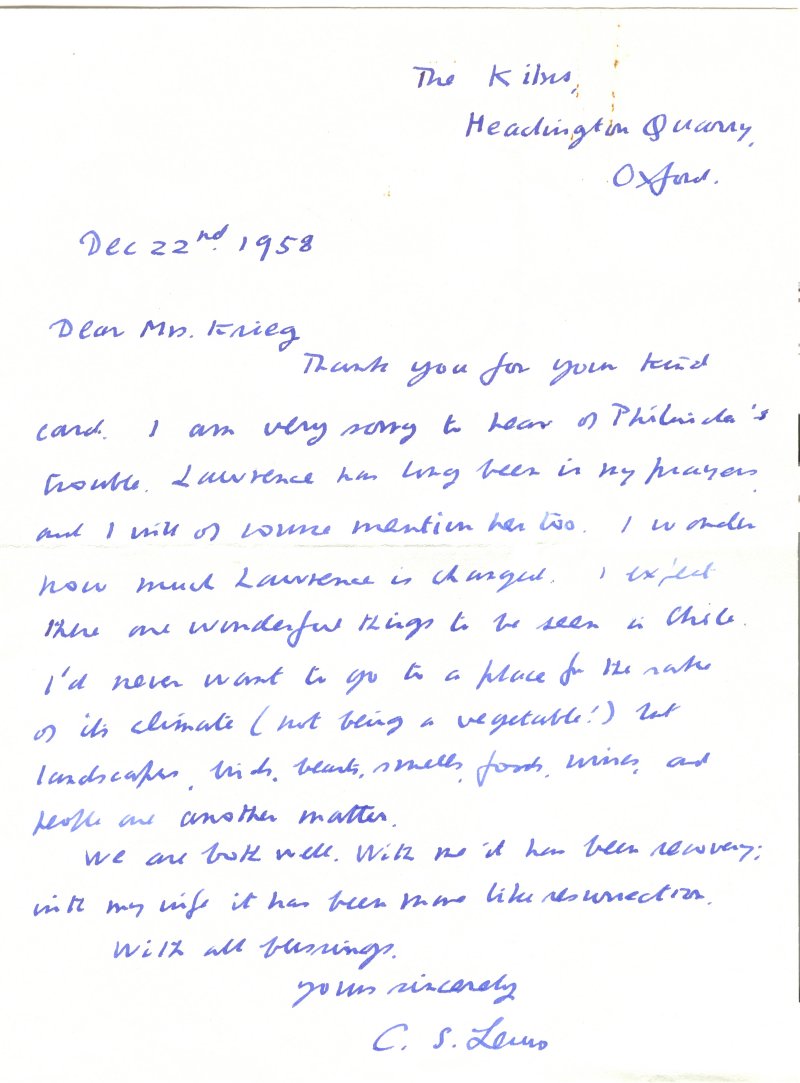 The Kilns,
Headington Quarry,
Oxford.
Dec 22nd. 1958
Dear Mrs. Krieg
Thank you for your kind
card. I am very sorry to hear of Philinda's
trouble. Lawrence has long been in my prayers
and I will of course mention her too. I wonder
how much Lawrence is changed. I expect
there are wonderful things to be seen in Chile.
I'd never want to go to a place for the sake
of its climate (not being a vegetable!) but
landscapes, birds, beasts, smells, foods, wines, and
people are another matter.
We are both well. With me it has been recovery;
with my wife it has been more like resurrection.
With all blessings.
Yours sincerely
C. S. Lewis